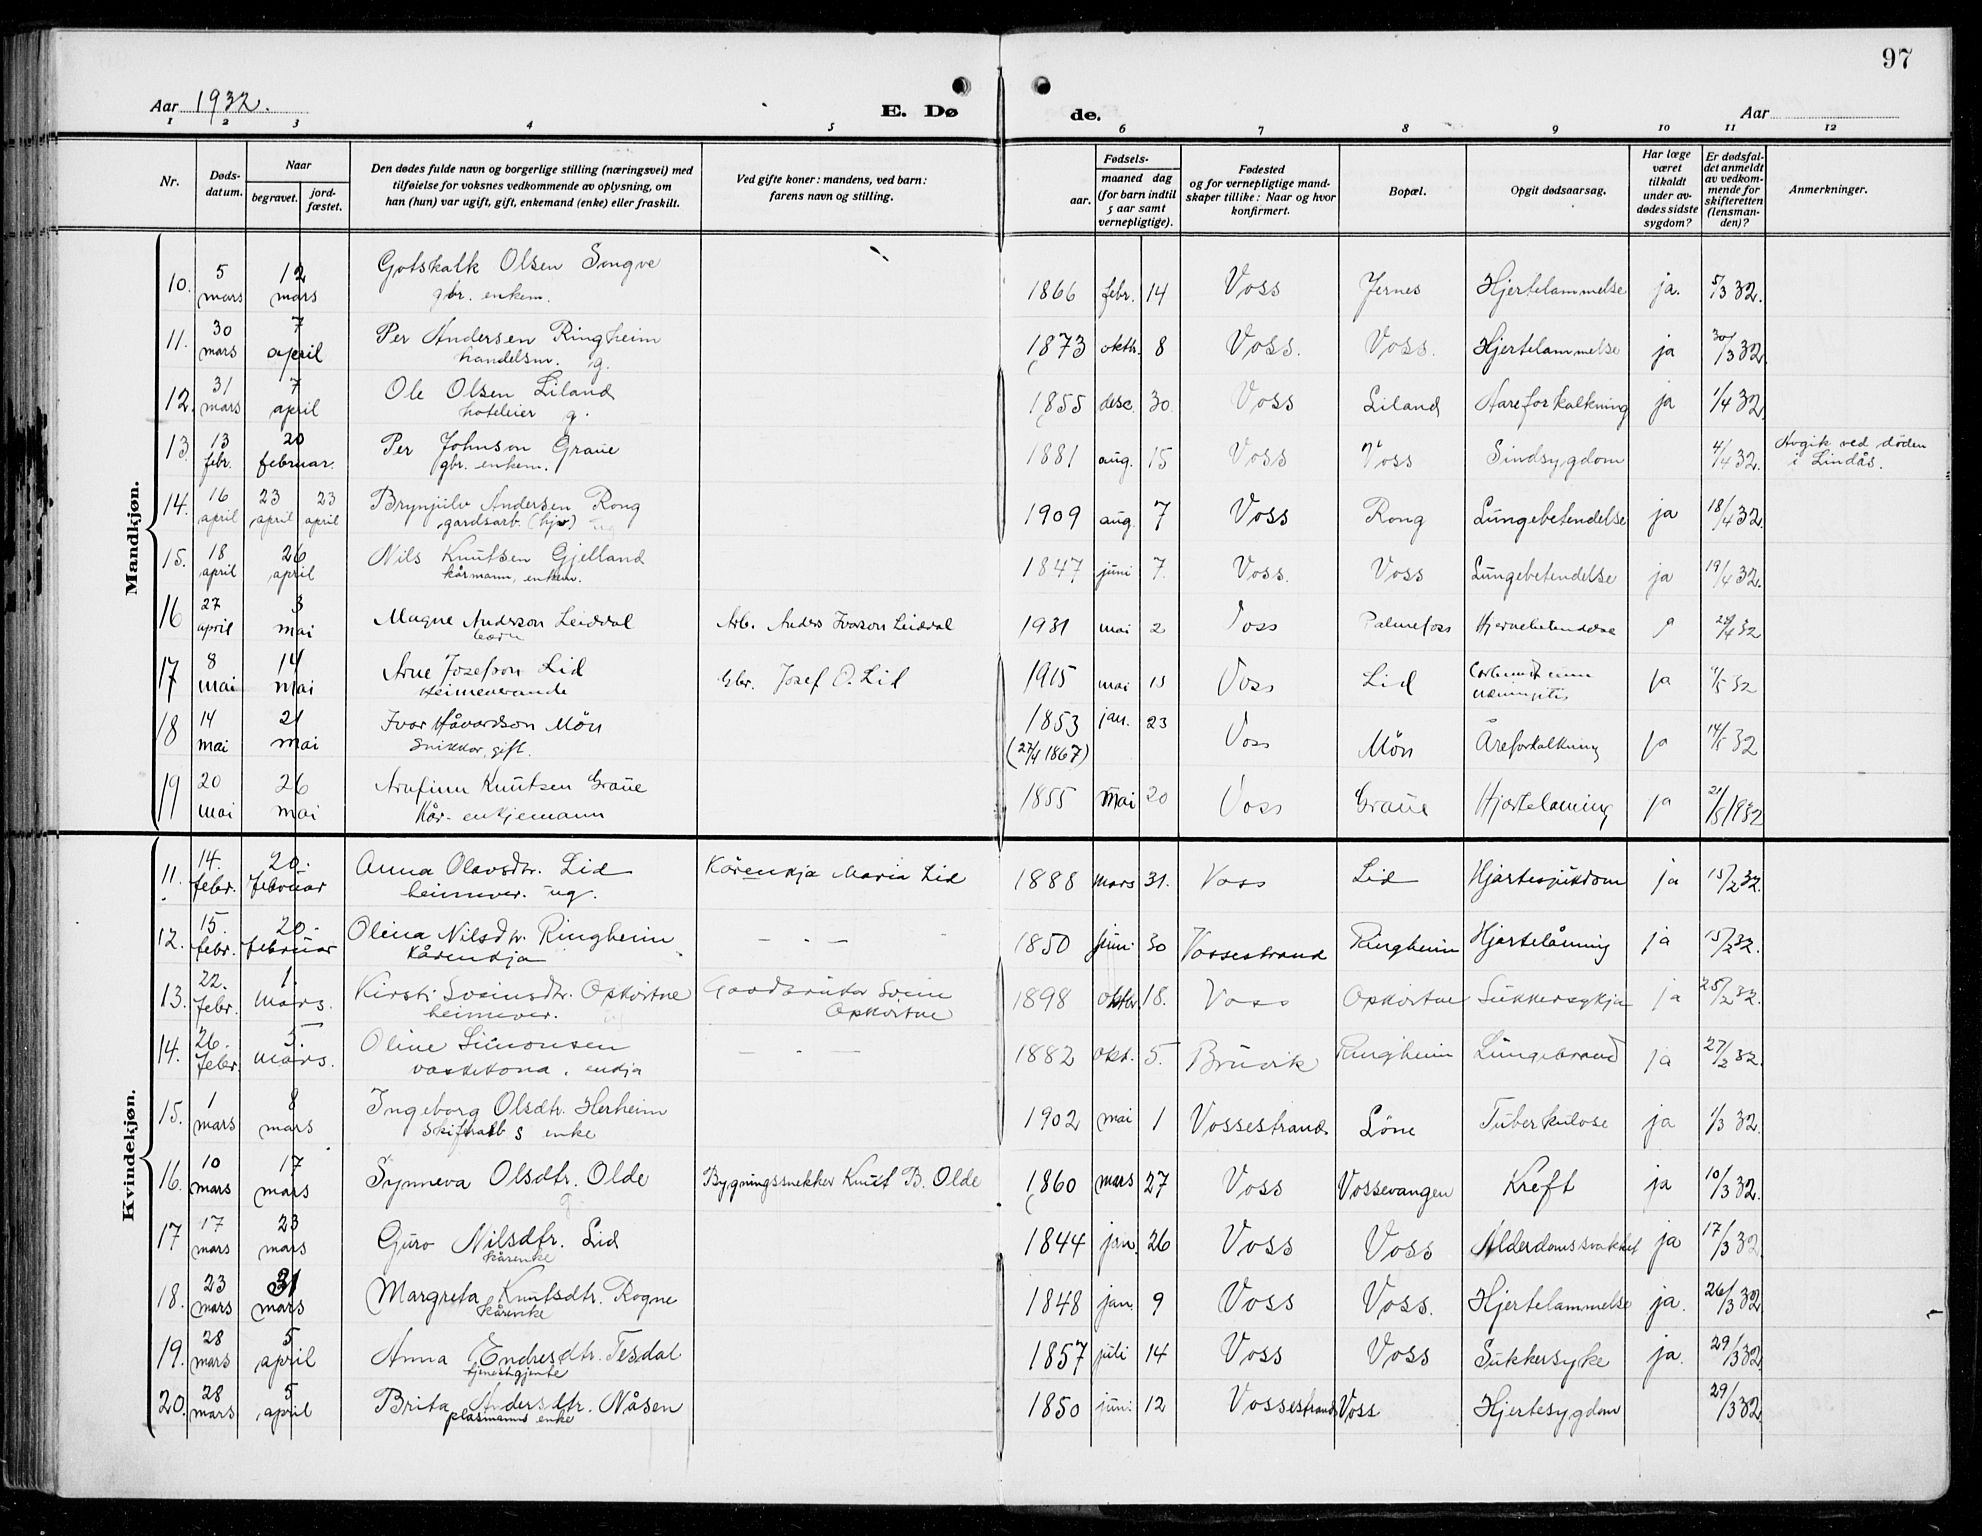 97
Aar 1932.
E. Døde.
Aar
1 2 3 4 5 6 7 8 9 10 11 12
Nr.
Døds-datum.
Naar
begravet.
jord-fæstet.
Den dødes fulde navn og borgerlige stilling (næringsvei) med
tilføielse for voksnes vedkommende av oplysning, om
han (hun) var ugift, gift, enkemand (enke) eller fraskilt.
Ved gifte koner: mandens, ved barn:
farens navn og stilling.
Fødsels-
aar.
maaned dag
(for barn indtil
5 aar samt
vernepligtige).
Fødested
og for vernepligtige mand-
skaper tillike: Naar og hvor
konfirmert.
Bopæl.
Opgit dødsaarsag.
Har læge
været
tilkaldt
under av-
dødes sidste
sygdom?
Er dødsfal-
det anmeldt
av vedkom-
mende for
skifteretten
(lensman-
den)?
Anmerkninger.
Mandkjøn.
10. 5 mars 12 mars Gotskalk Olsen Songve 1866 febr. 14 Voss Jernes Hjertelammelse ja. 5/3 32.
gbr. enkem.
11. 30 mars 7 april Per Andersen Ringheim 1873 oktb. 8 Voss. Voss. Hjertelammelse ja 30/3 32.
handelsm. g.
12. 31 mars 7 april Ole Olsen Liland 1855 desc. 30. Voss Liland Aareforkalkning ja 1/4 32.
hoteleier g.
13. 13 febr. 20 februar. Per Johnson Graue 1881 aug. 15 Voss Voss Sindsygdom 4/4 32. Avgik ved døden
gbr. enkem. i Lindås.
14. 16 april 23 april 23 april Brynjulv Andersen Rong 1909 aug. 7 Voss Rong Lungebetendelse ja 18/4 32.
gardsarb. (hjv) ug
15. 18 april 26 april Nils Knutsen Gjelland 1847 juni 7. Voss. Voss Lungebetendelse ja 19/4 32.
kårmann, enkem.
16 27 april 3 mai Magne Anderson Leiddal Arb. Anders Ivarson Leiddal 1931 mai 2 Voss Palmefoss Hjernebetendelse 28/4 32
barn
17 8 mai 14 mai Arne Josefson Lid Gbr. Josef O. Lid 1915 mai 15 Voss Lid ja
heimeverande
18 14 mai 21 mai Ivar Håvardson Mön 1853 jan. 23 Voss Mön Åreforkalkning ja 14/5 32
Snikkar, gift. (27/4 1867)
19 20 mai 26 mai Arnfinn Knutsen Graue 1855 mai 20 Voss Graue Hjartelaming ja 21/5 1932
Kår- enkjemann
Kvindekjøn.
11. 14. febr. 20. februar Anna Olavsdtr. Lid Kårenkja Maria Lid 1888 mars 31. Voss Lid Hjartesjukdom ja 15/2 32.
heimever. ug.
12. 15. febr. 20. februar Olina Nilsdtr. Ringheim — - — 1850 juni 30 Vossestrand Ringheim Hjartelåming ja 15/2 32.
Kårenkja
13. 22. febr. 1. mars. Kirsti Sveinsdtr. Opkortne Gardbrukar Svein 1898 oktbr. 18. Voss Opkortne Sukkersykja ja 25/2 32.
heimever. ug Opkortne
14. 26. febr. 5. mars. Oline Simonsen — - — 1882 okt. 5. Bruvik Ringheim Lungebrand ja 27/2 32.
vaskekona, enkja
15. 1 mars 8 mars Ingeborg Olsdtr. Herheim 1902 mai 1 Vossestrand Löne Tuberkulose ja 1/3 32.
enke
16. 10 mars 17 mars Synneva Olsdtr. Olde Bygningssnekker Knut B. Olde 1860 mars 27 Voss Vossevangen Kreft ja 10/3 32.
g
17 17 mars 23 mars Guro Nilsdtr. Lid 1844 jan. 26 Voss Voss Alderdomssvakhet ja 17/3 32.
kårenke
18. 23 mars 31 mars Margreta Knutsdtr. Rogne 1848 jan. 9 Voss Voss. Hjertelammelse ja. 26/3 32
kårenke
19. 28 mars 5 april Anna Endresdtr. Tesdal 1857 juli 14 Voss Voss Sukkersyke ja. 29/3 32
tjenestgjente
20. 28 mars 5 april Brita Andersdtr. Nåsen 1850 juni 12 Vossestrand Voss Hjertesygdom 29/3 32
plasmanns enke